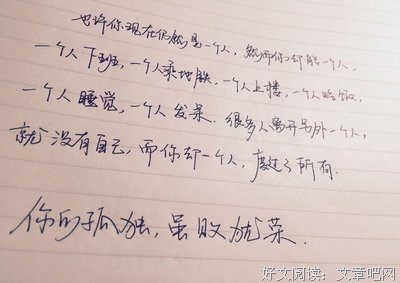 也许你现在仍然是一个人，然而你却能一个人，
一个人下班，一个人乘地铁，一个人上楼，一个人吃饭，
一个人睡觉，一个人发呆。很多人离开另外一个人，
就没有自己，而你却一个人，度过了所有．
你的孤独，虽败犹荣．
好文阅读：文章吧网